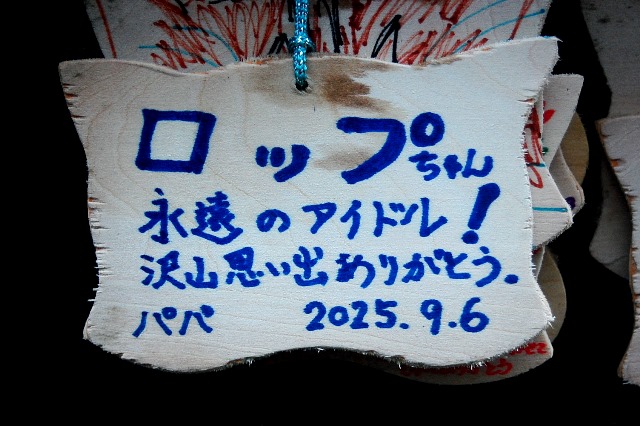 ロップちゃん
永遠のアイドル!
沢山思い出ありがとう。
パパ 2025.9.6